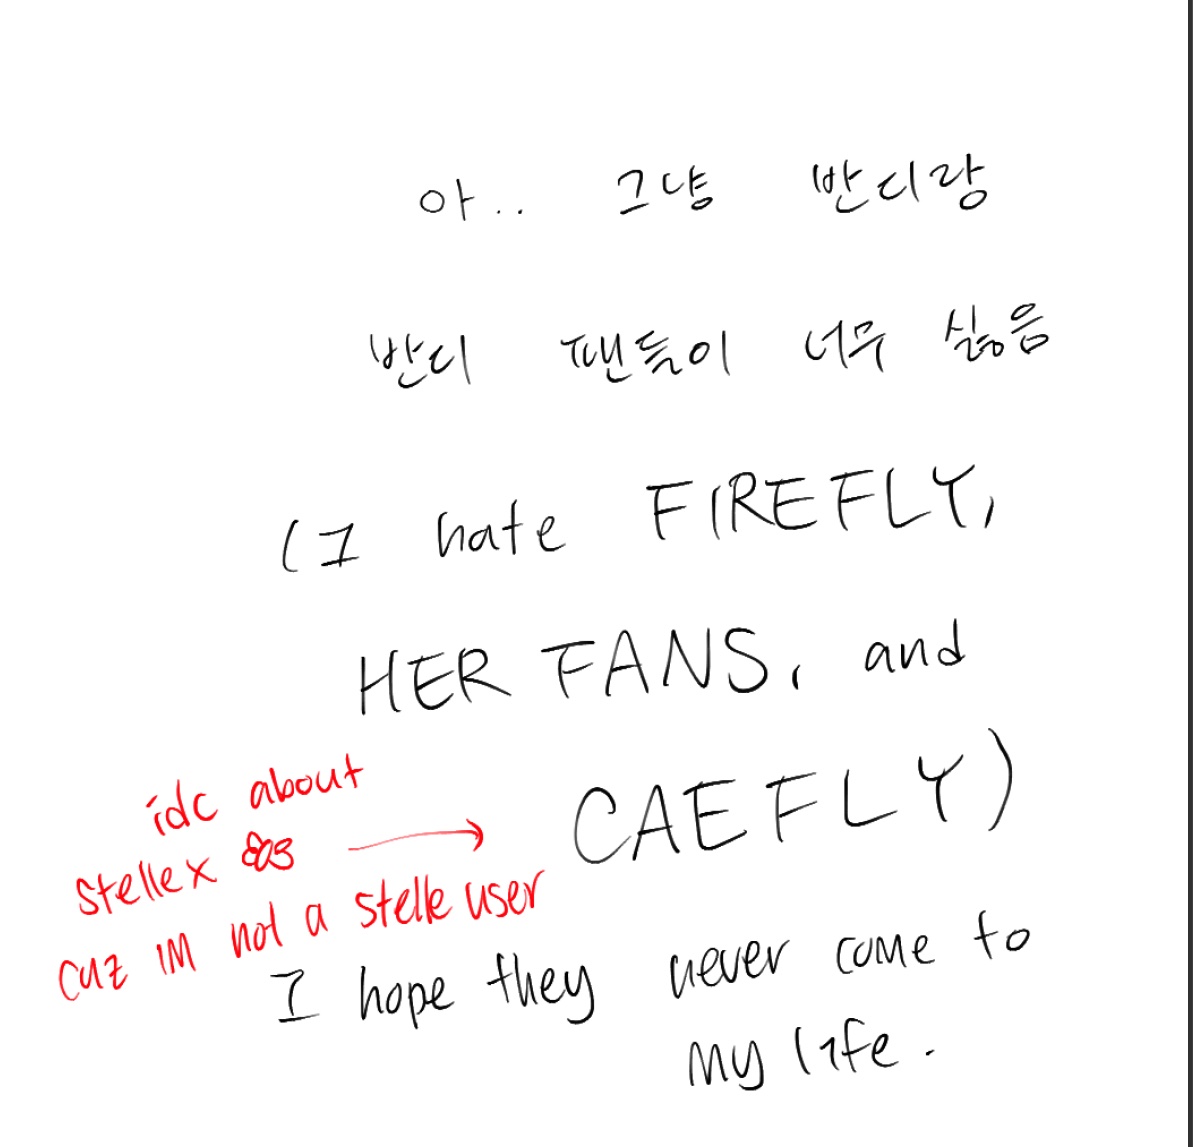 아.. 그냥 반디랑
반디 팬들이 너무 싫음
(I hate FIREFLY,
HER FANS, and
CAEFLY)
idc about
stellex →
cuz IM not a stelle user
I hope they never come to
my life.